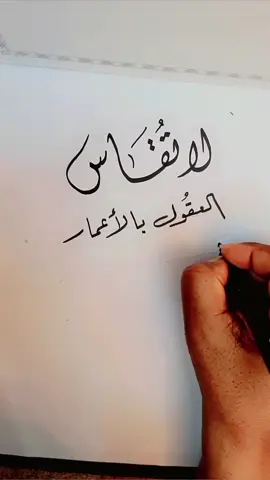 لا تُقَاس
العقُول بالأعمار